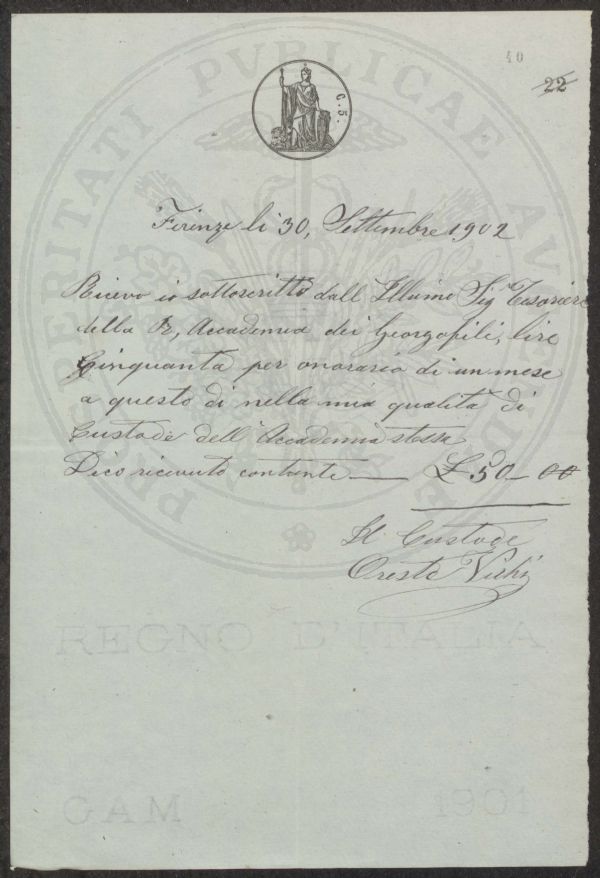 40
22
C. 5.
PROSPERITATI PVBLICAE AVGENDAE
Firenze li 30, Settembre 1902
Ricevo io sottoscritto dall Illumo Sig Tesoriere
della R, Accademia dei Georgofili, lire
Cinquanta per onorario di un mese
a questo dì nella mia qualità di
Custode dell'Accademia stessa
Dico ricevuto contante — £ 50-00
Il Custode
Oreste Vichi
REGNO D'ITALIA
GAM 1901